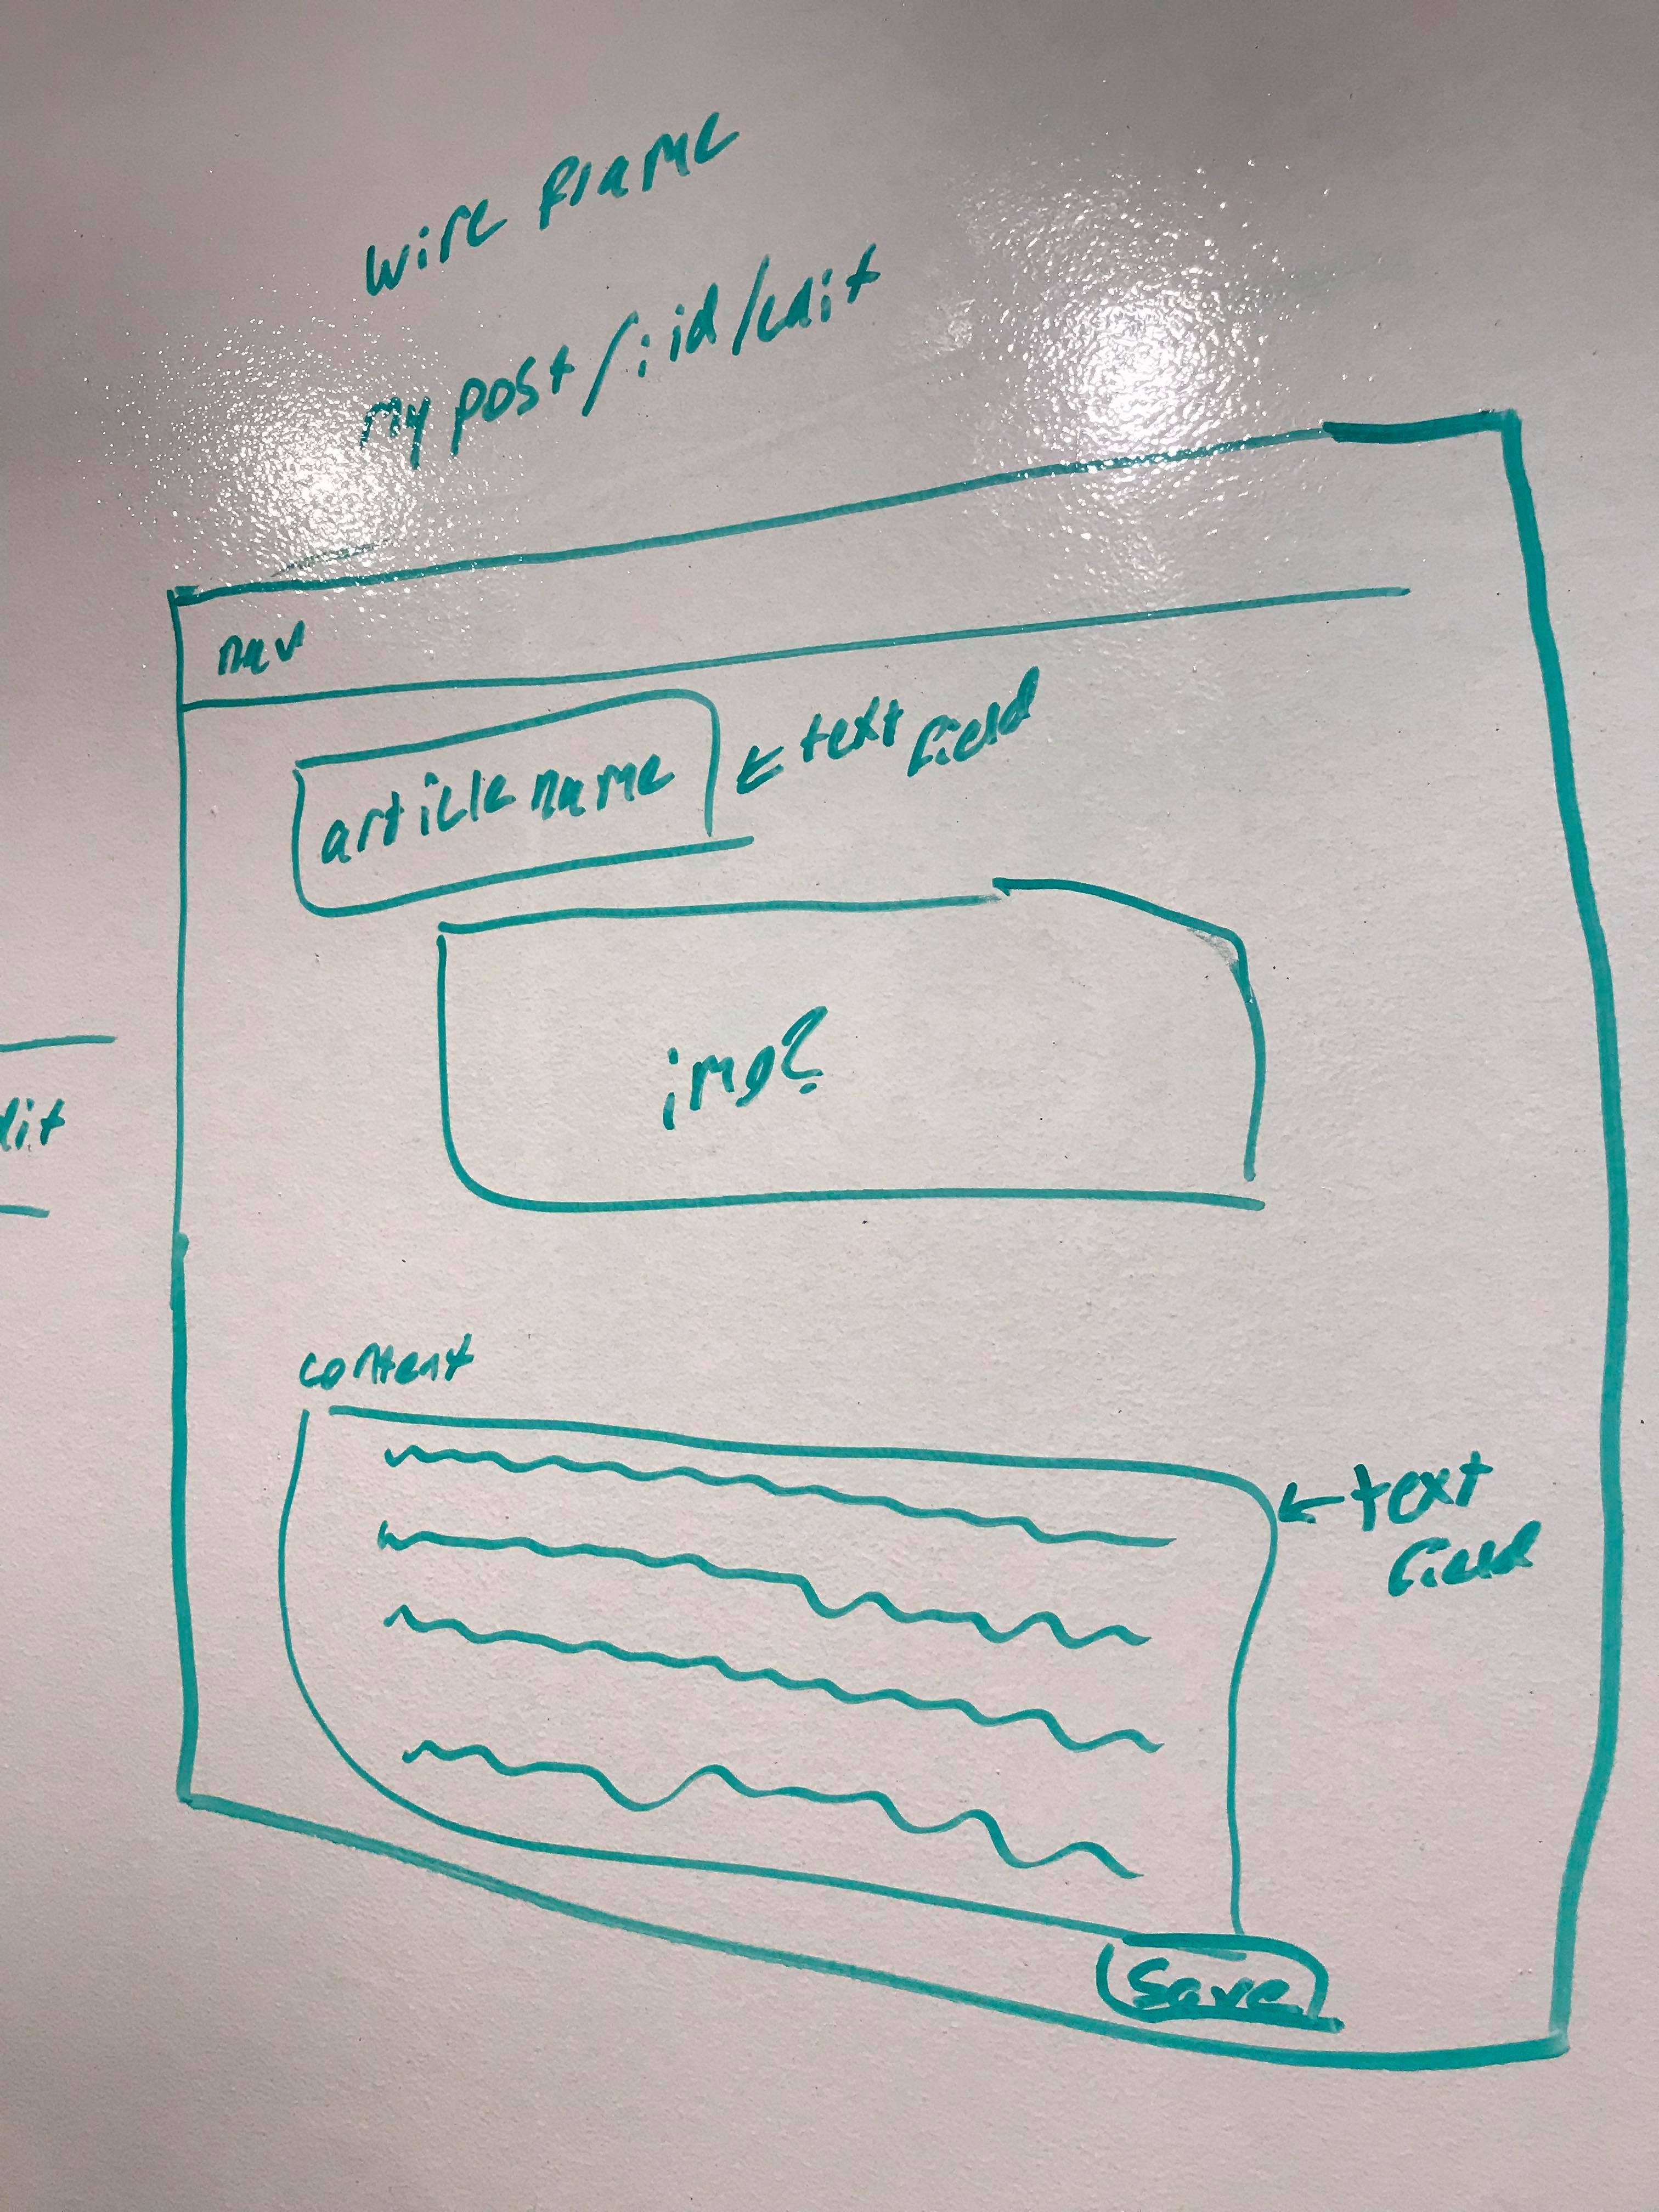 wire frame
my post/:id/edit
nav
article name
← text field
img?
content
← text
field
Save